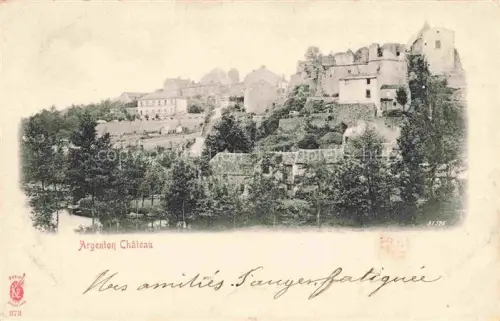 Argenton Château
Nos amitiés. Tanger fatiguée
873